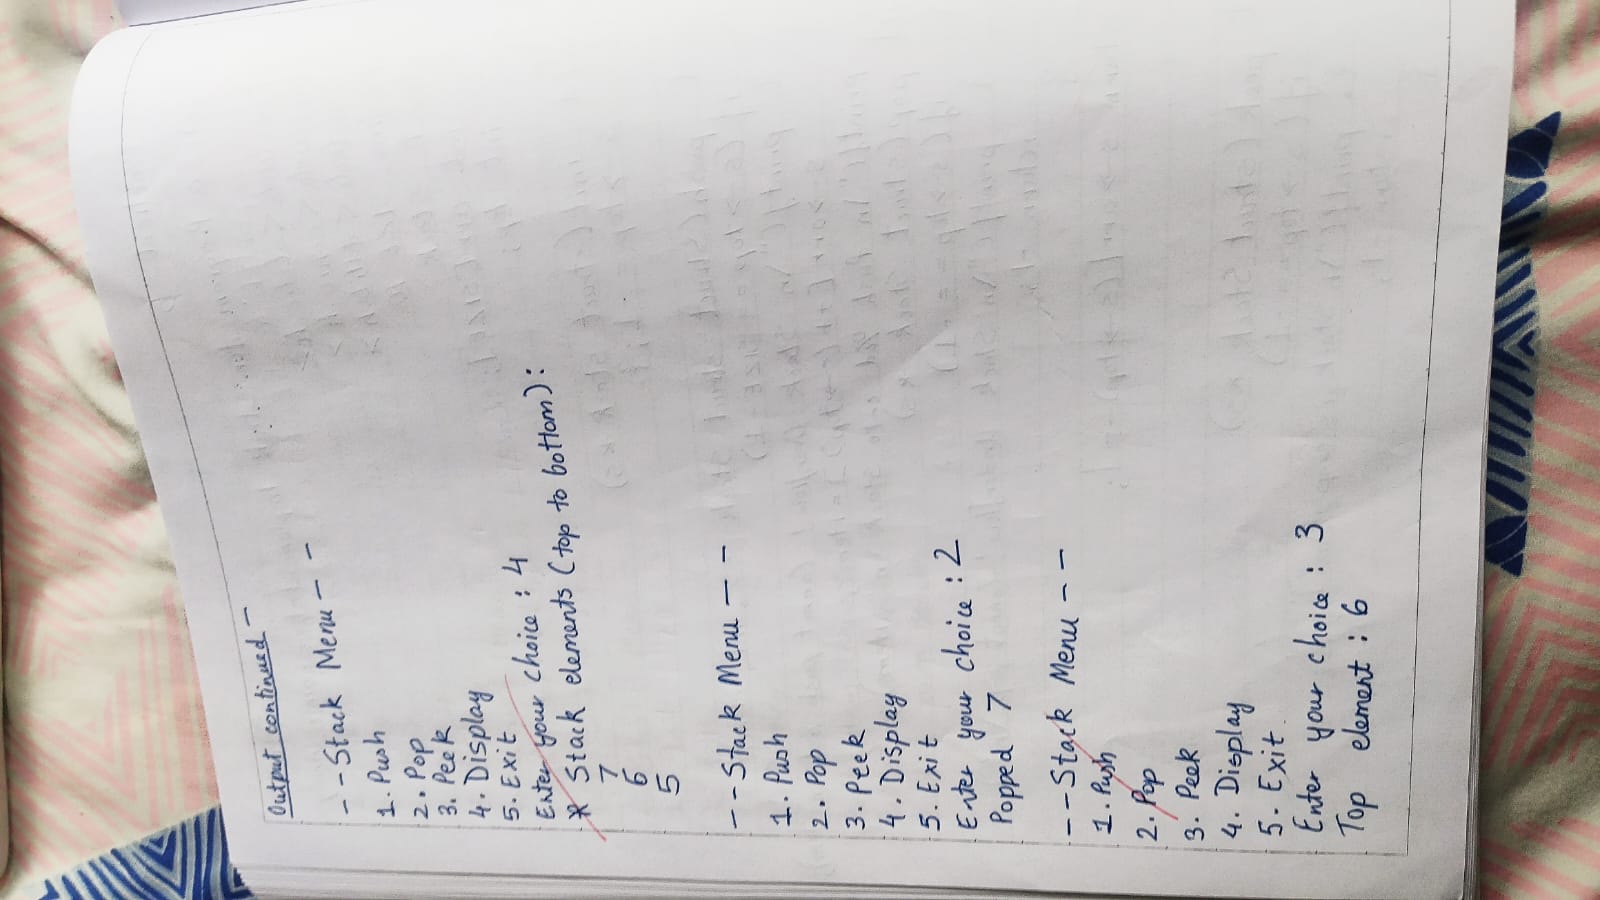 Output continued -
- - Stack Menu - -
1. Push
2. Pop
3. Peek
4. Display
5. Exit
Enter your choice : 4
* Stack elements (top to bottom):
7
6
5
- - Stack Menu - -
1. Push
2. Pop
3. Peek
4. Display
5. Exit
Enter your choice : 2
Popped 7
- - Stack Menu - -
1. Push
2. Pop
3. Peek
4. Display
5. Exit
Enter your choice : 3
Top element : 6